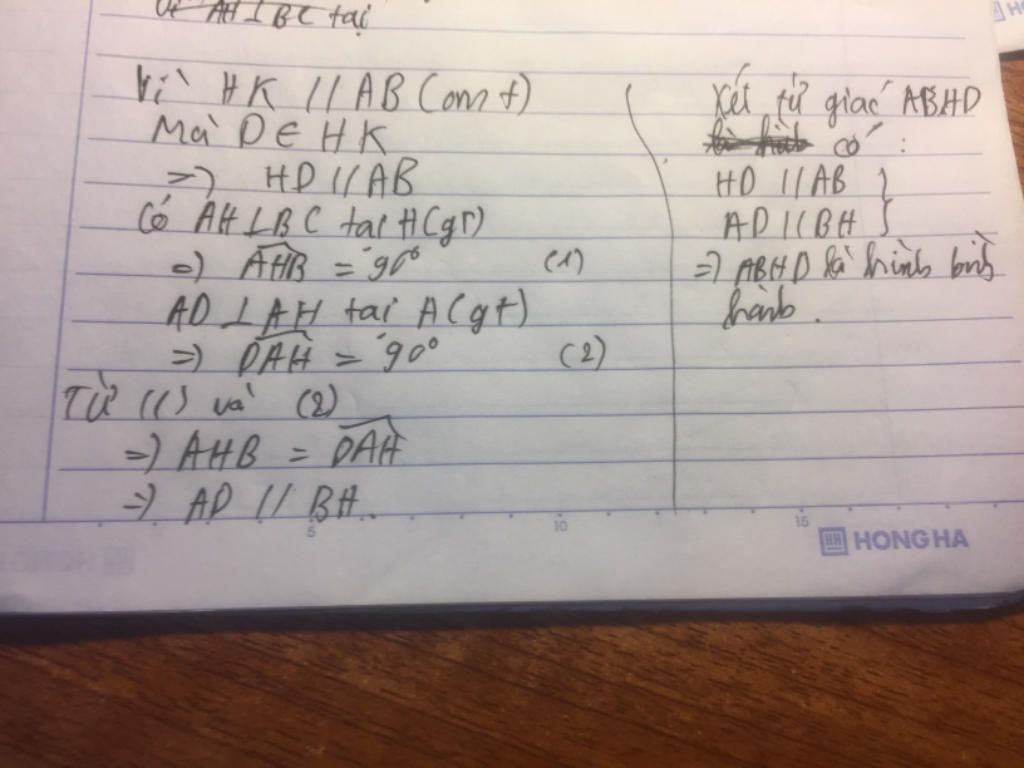 Vì AH⊥BC tại
Vì HK // AB (cmt)
Mà D ∈ HK
=> HD // AB
Có AH⊥BC tại H (gt)
=> AHB = 90° (1)
AD ⊥ AH tại A (gt)
=> DAH = 90° (2)
Từ (1) và (2)
=> AHB = DAH
=> AD // BH.
Xét tứ giác ABHD
là hình có :
HD // AB }
AD // BH
=> ABHD là hình bình
hành.
5 10 15
HONG HA